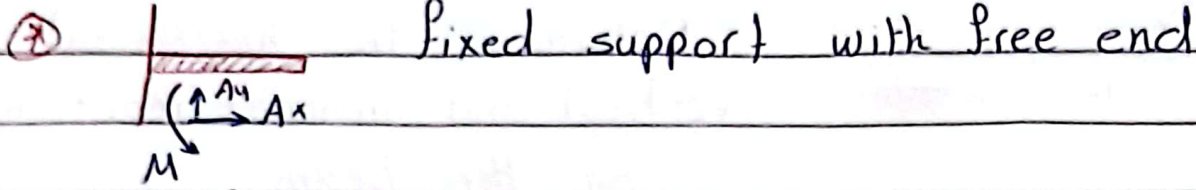 * fixed support with free end
Ay
Ax
M